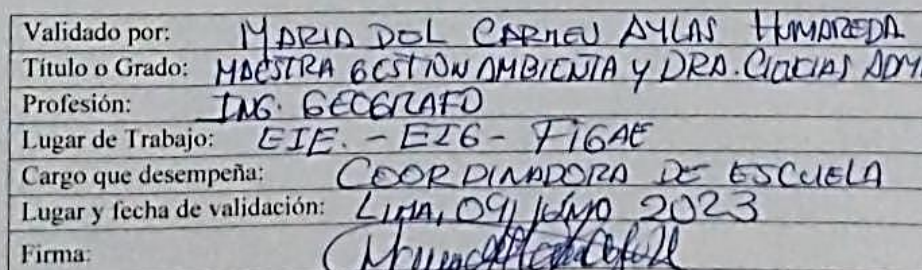 Validado por: MARIA DEL CARMEN AYLAS HUMAREDA
Título o Grado: MAESTRA GESTION AMBIENTA Y DRA. CIENCIAS ADM
Profesión: ING. GEOGRAFO
Lugar de Trabajo: EIE. - EIG - FIGAE
Cargo que desempeña: COORDINADORA DE ESCUELA
Lugar y fecha de validación: LIMA, 09/ 2023
Firma: